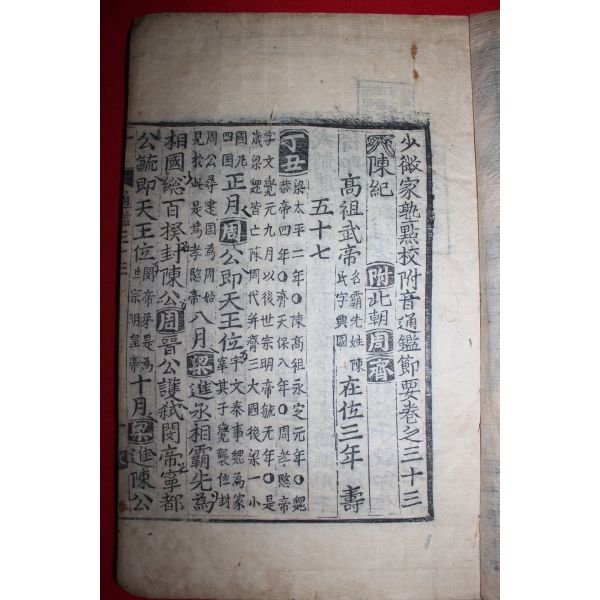 少微家塾點校附音通鑑節要卷之三十三
陳紀 附北朝 周 齊
高祖武帝 名霸先姓陳氏字興國 在位三年 壽
五十七
丁丑 梁太平二年○陳高祖永定元年○魏恭帝四年○齊天保八年○周孝愍帝宇文覺元九月以後世宗明帝毓元年○是歲梁魏皆亡陳周代并齊三大國後梁一小國凡四國 正月周公即天王位 宇文泰事魏爲冢宰其子覺襲位封周公尋建國爲周始見於此是爲孝愍帝 八月梁進丞相霸先爲
相國總百揆封陳公周晉公護弑閔帝寧都
公毓即天王位 閔帝弟是爲世宗明皇帝 十月梁進陳公